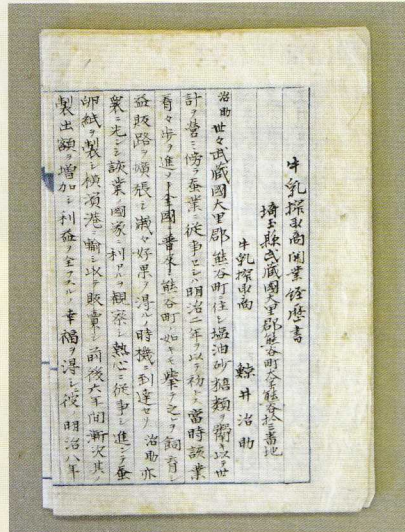 牛乳搾取商開業経歴書
埼玉縣武藏國大里郡熊谷町大字熊谷拾三番地
牛乳搾取商 鯨井治助
治助世々武藏國大里郡熊谷町ニ住シ塩油砂糖類ヲ鬻以テ世
計ヲ営ミ傍ラ蚕業ニ従事セシハ明治二年ヲ以テ初トス當時該業
着々歩ヲ進メ全國普ク熊谷町ノ如キモ挙テ之ヲ飼育シ
益販路ヲ擴張シ漸々好果ヲ得ル時機ニ到達セリ治助亦
衆ニ先シシ該業ノ國家ニ利アルヲ観察シ熱心ニ従事シ進ンテ蚕
卵紙ヲ製シ横濱港ニ輸シ以テ販賣シ前後六年間漸次其ノ
製出額ヲ増加シ利益ヲ全フスルノ幸福ヲ得シ後明治八年